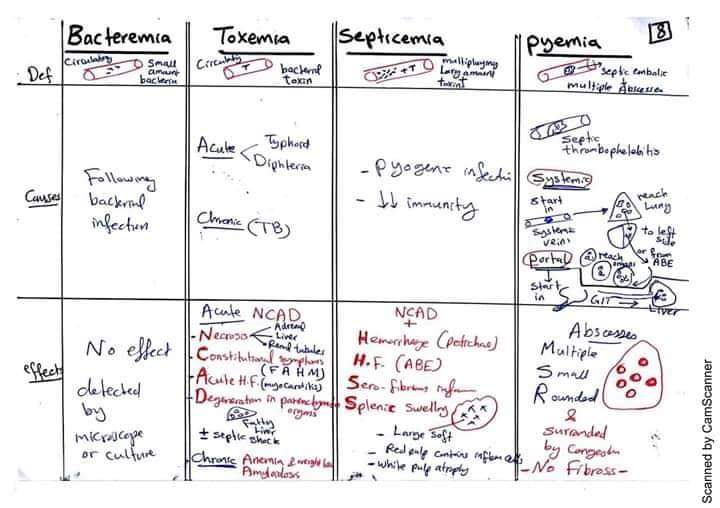 8
Bacteremia
Toxemia
Septicemia
pyemia
Def
Circulating
Small
amount
bacteria
Circulatig
T
bacteral
toxin
+T
multiplying
Larg amount
toxins
septic embolic
multiple Abscesses
Causes
Following
bacteral
infection
Acute
Typhoid
Diphteria
Chronic (TB)
- pyogenc infecti
- ↓↓ immunity
Septic
thrombophelobitis
Systemic
start
in
systemic
veins
reach
Lung
to left
side
or from
ABE
Portal
reach
organs
start
in
GIT
Liver
effects
No effect
detected
by
microscope
or culture
Acute NCAD
- Necrosis
Adrenal
Liver
Renal tubules
- Constitutional symptoms
(FAHM)
- Acute H.F. (myocarditis)
- Degeneration in parenchymatous
organs
Fatty
Liver
± septic shock
- Chronic Anemia & weight loss
Amyloidosis
NCAD
+
Hemorrhage (petichae)
H.F. (ABE)
Sero-fibrinous inflam
Splenic Swelling
- Large soft
- Red pulp contains inflam cells
- White pulp atrophy
Abscesses
Multiple
Small
Rounded
&
Surranded
by Congestion
- No Fibross -
Scanned by CamScanner